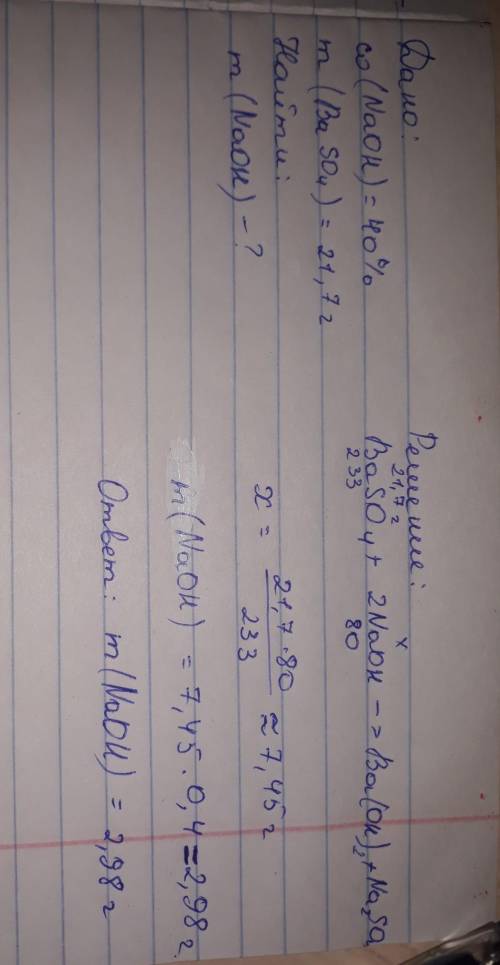 Дано:
ω(NaOH) = 40%
m(BaSO₄) = 21,7 г
Найти:
m(NaOH) – ?
Решение:
21,7 г x
BaSO₄ + 2NaOH –> Ba(OH)₂ + Na₂SO
233 80
x = 21,7·80 / 233 ≈ 7,45 г
m(NaOH) = 7,45·0,4 = 2,98 г.
Ответ: m(NaOH) = 2,98 г